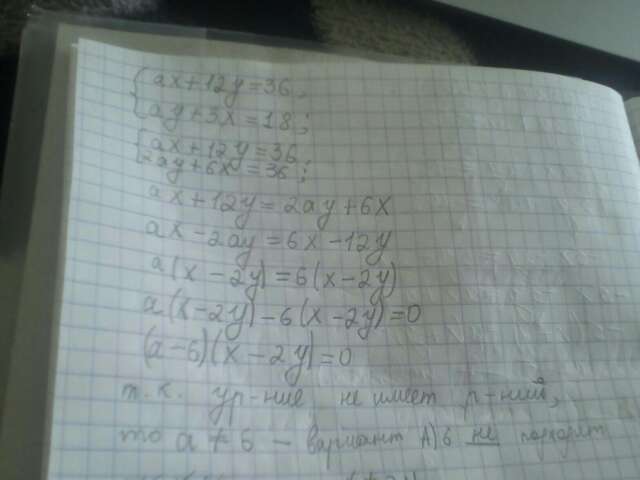 ax+12y=36,
ay+3x=18;
ax+12y=36
2ay+6x=36;
ax+12y=2ay+6x
ax-2ay=6x-12y
a(x-2y)=6(x-2y)
a(x-2y)-6(x-2y)=0
(a-6)(x-2y)=0
т.к. ур-ние не имеет р-ний,
то a≠6 - вариант А)6 не подходит